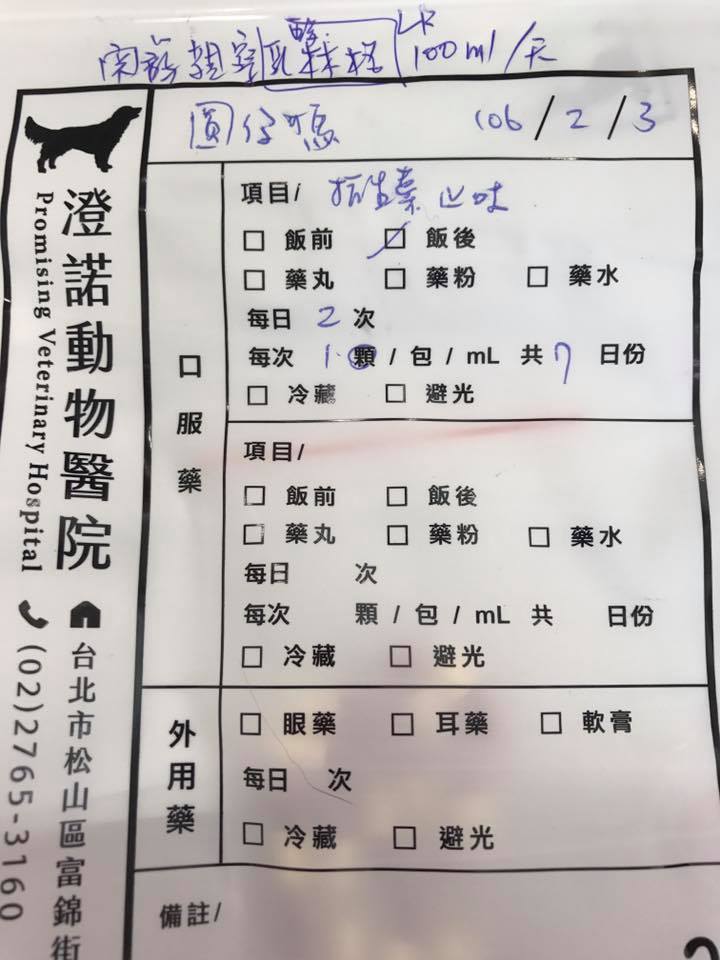 乳酸林格 LR 100ml/天
圓仔媽 106/2/3
澄諾動物醫院
Promising Veterinary Hospital
台北市松山區富錦街
(02)2765-3160
口服藥
項目/ 抗生素 止吐
□ 飯前 ☑ 飯後
□ 藥丸 □ 藥粉 □ 藥水
每日 2 次
每次 1 顆 / 包 / mL 共 7 日份
□ 冷藏 □ 避光
項目/
□ 飯前 □ 飯後
□ 藥丸 □ 藥粉 □ 藥水
每日 次
每次 顆 / 包 / mL 共 日份
□ 冷藏 □ 避光
外用藥
□ 眼藥 □ 耳藥 □ 軟膏
每日 次
□ 冷藏 □ 避光
備註/